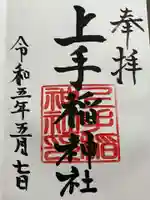 奉拝
上手稲神社
令和五年五月七日